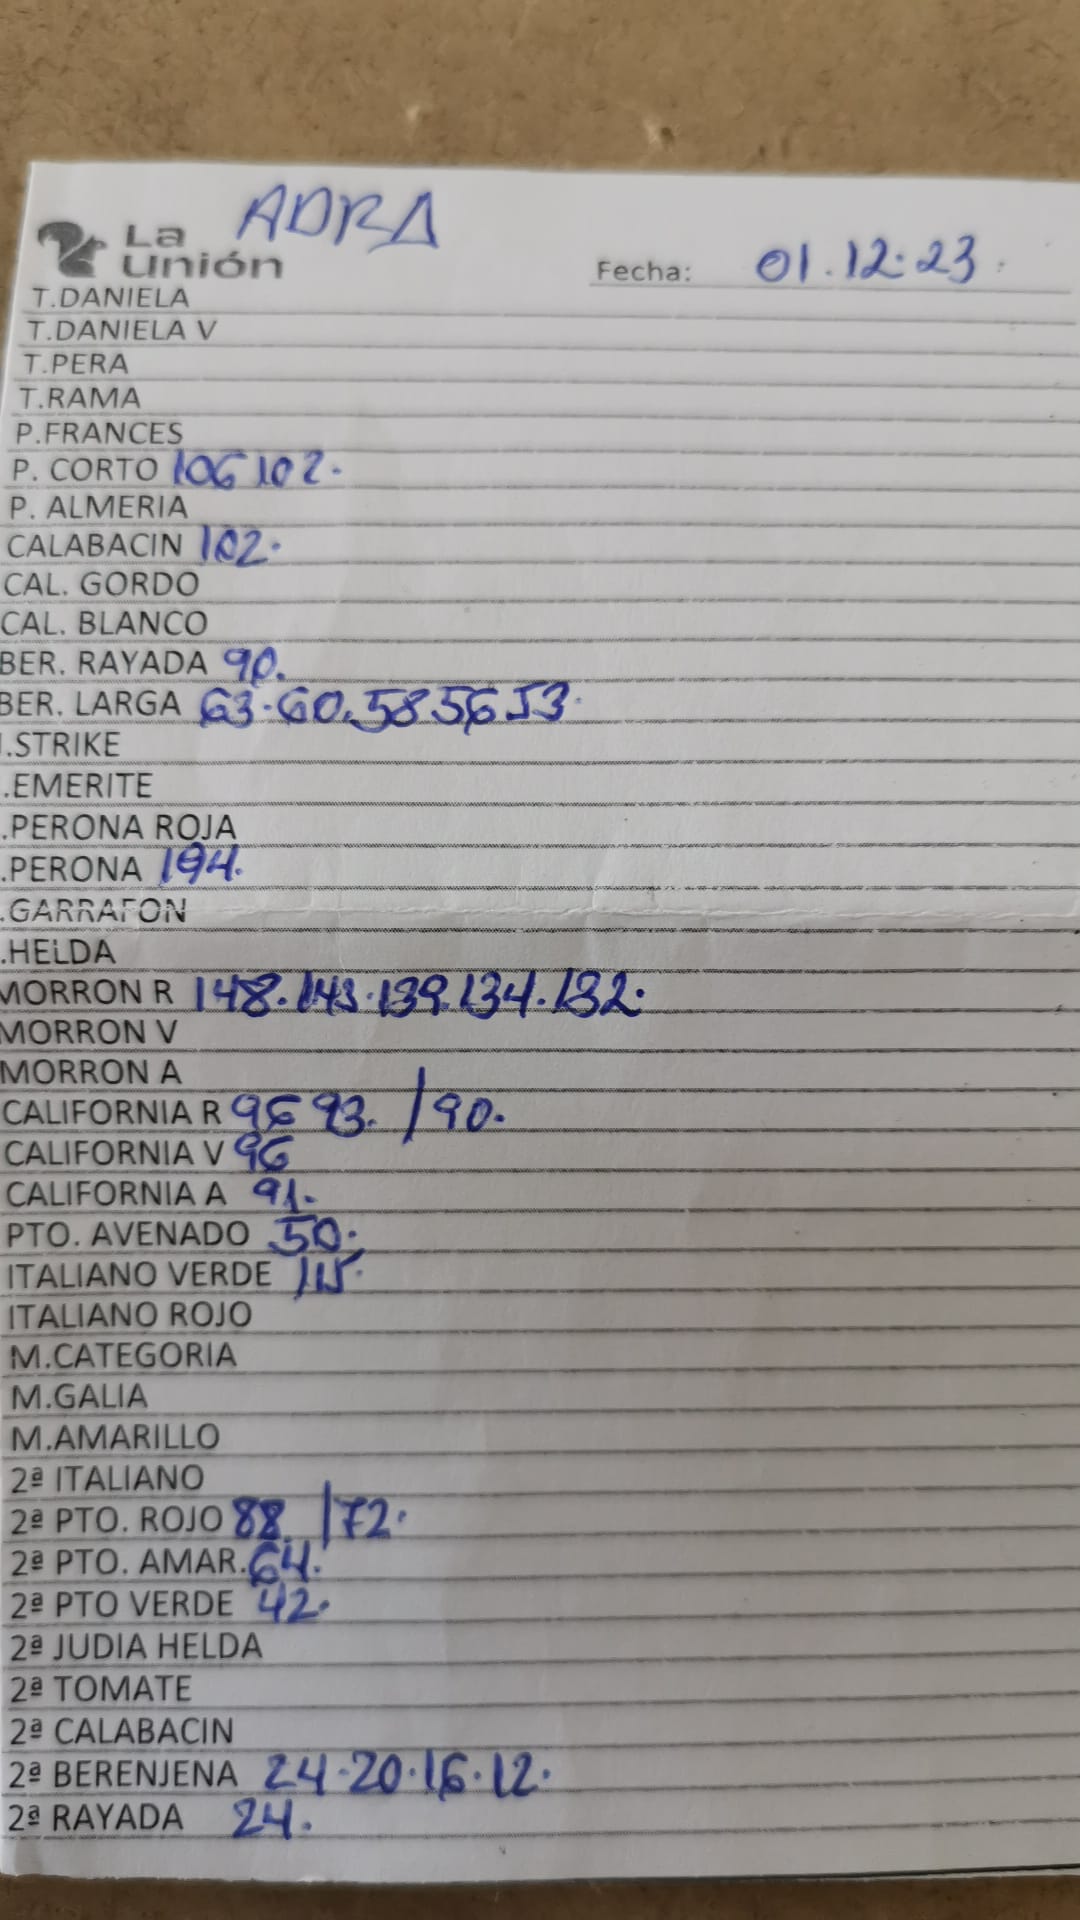 ADRA
La
Unión
Fecha: 01.12.23.
T.DANIELA
T.DANIELA V
T.PERA
T.RAMA
P.FRANCES
P. CORTO 106 102.
P. ALMERIA
CALABACIN 102.
CAL. GORDO
CAL. BLANCO
BER. RAYADA 90.
BER. LARGA 63.60.58 56 53.
.STRIKE
.EMERITE
.PERONA ROJA
.PERONA 194.
.GARRAFON
.HELDA
MORRON R 148.143.139.134.132.
MORRON V
MORRON A
CALIFORNIA R 96 93. /90.
CALIFORNIA V 96
CALIFORNIA A 91.
PTO. AVENADO 50.
ITALIANO VERDE 115.
ITALIANO ROJO
M.CATEGORIA
M.GALIA
M.AMARILLO
2ª ITALIANO
2ª PTO. ROJO 88. /72.
2ª PTO. AMAR. 64.
2ª PTO VERDE 42.
2ª JUDIA HELDA
2ª TOMATE
2ª CALABACIN
2ª BERENJENA 24.20.16.12.
2ª RAYADA 24.